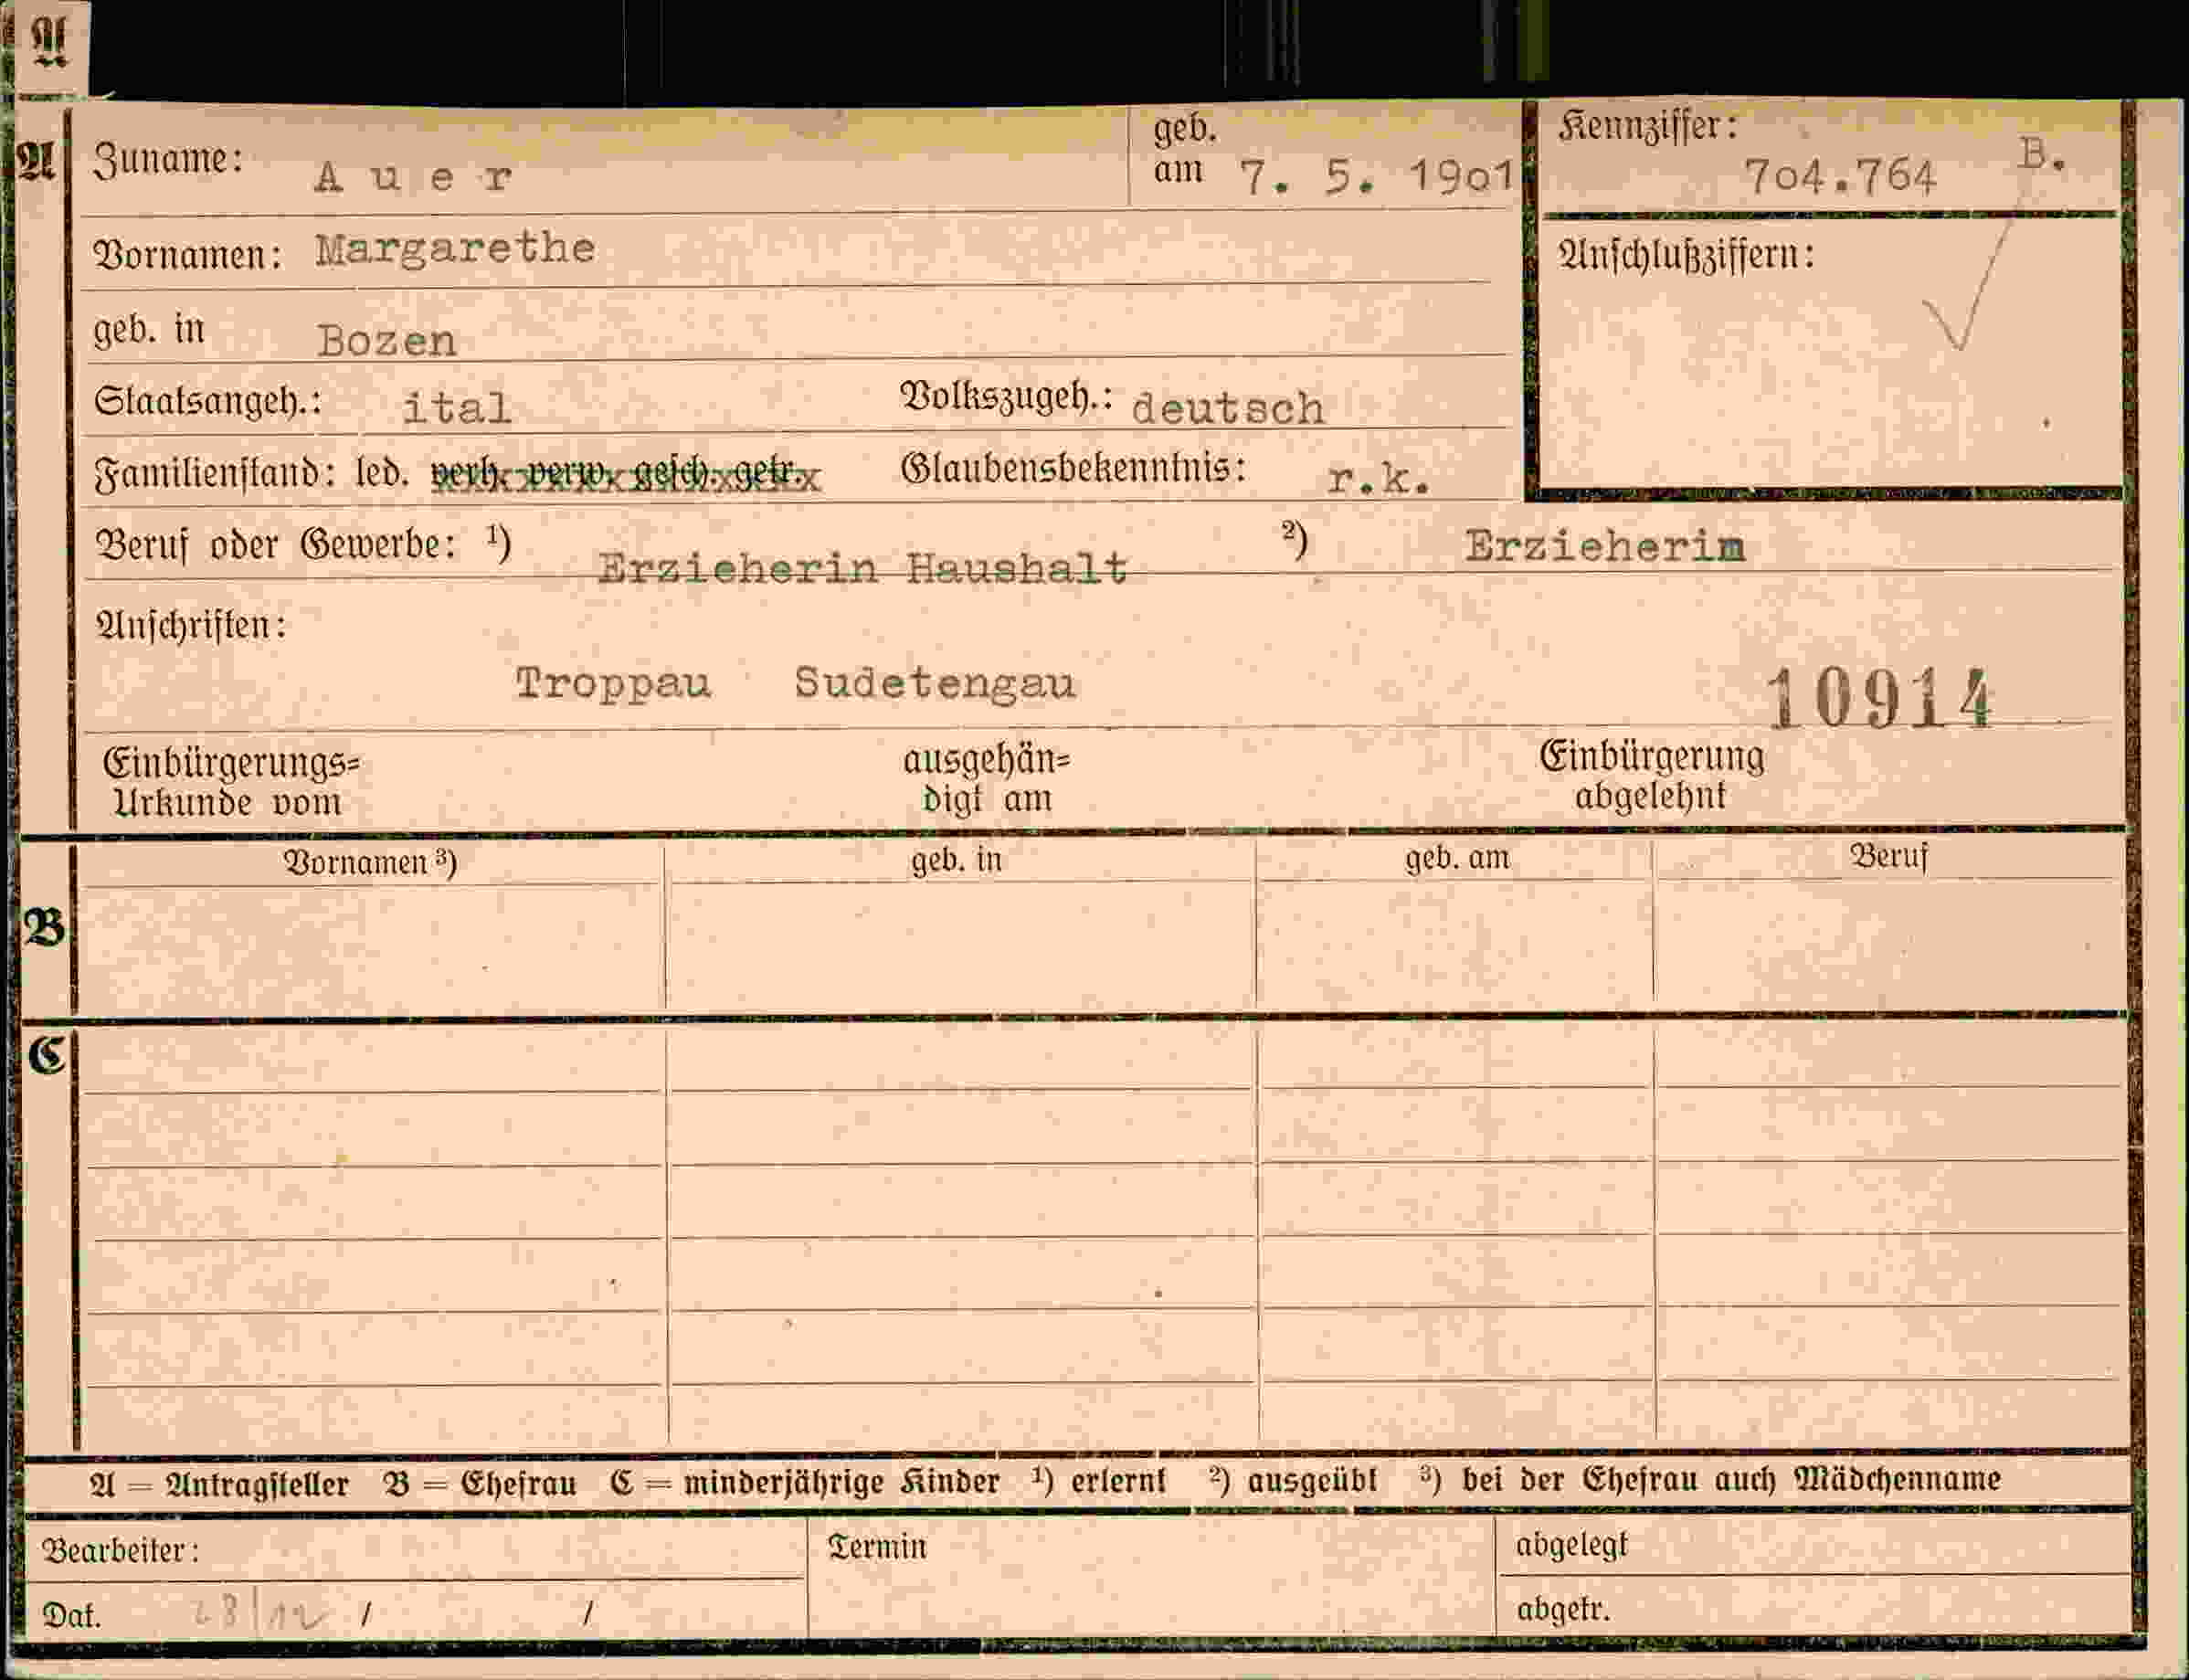 A
A Zuname: Auer geb. am 7. 5. 19o1 Kennziffer: 7o4.764 B.
Vornamen: Margarethe Anschlußziffern:
geb. in Bozen
Staatsangeh.: ital Volkszugeh.: deutsch
Familienstand: led. verh. verw. gesch. getr. Glaubensbekenntnis: r.k.
Beruf oder Gewerbe: ¹) Erzieherin Haushalt ²) Erzieherin
Anschriften:
Troppau Sudetengau 10914
Einbürgerungs= ausgehän= Einbürgerung
Urkunde vom digt am abgelehnt
Vornamen ³) geb. in geb. am Beruf
B
C
A = Antragsteller B = Ehefrau C = minderjährige Kinder ¹) erlernt ²) ausgeübt ³) bei der Ehefrau auch Mädchenname
Bearbeiter: Termin abgelegt
Dat. 28/12 / / abgetr.